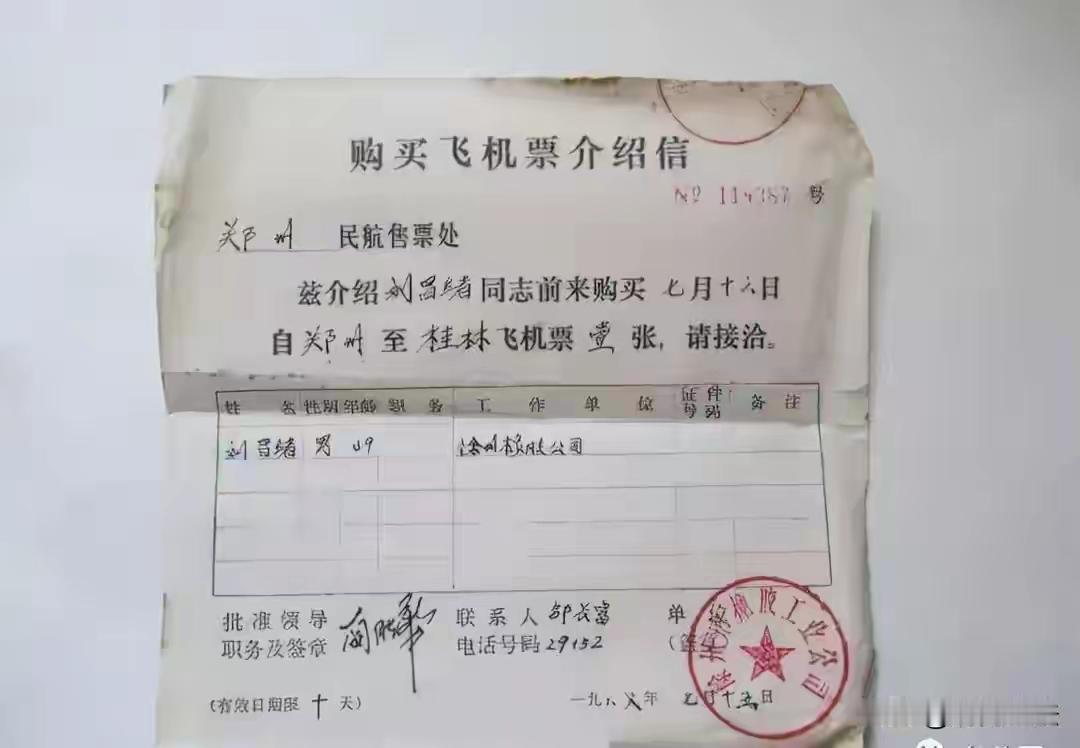 购买飞机票介绍信
№ 114387 号
郑州 民航售票处
兹介绍刘昌绪同志前来购买 七月十六日
自郑州至桂林飞机票 壹 张，请接洽。
姓名 性别 年龄 职务 工作单位 证件号码 备注
刘昌绪 男 49 徐州橡胶公司
批准领导 联系人 邹长富 单
职务及签章 电话号码 29152 （签章
徐州市橡胶工业公司
（有效日期限 十 天） 一九八 年 七月十五日